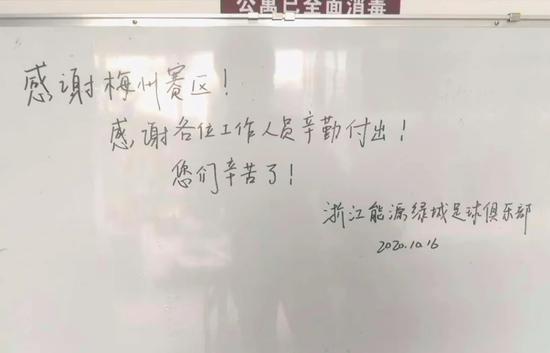 公寓已全面消毒
感谢梅州赛区！
感谢各位工作人员辛勤付出！
您们辛苦了！
浙江能源绿城足球俱乐部
2020.10.16